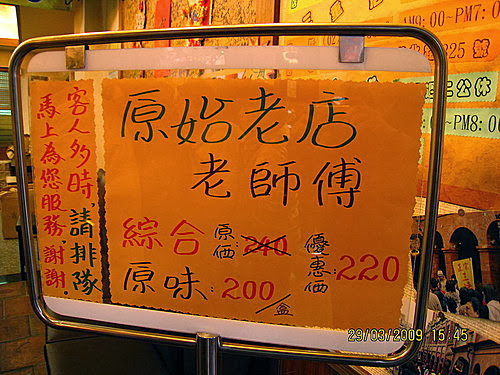 原始老店
老師傅
綜合 原價:240 優惠價:220
原味:200/盒
客人多時,請排隊
馬上為您服務,謝謝.
AM9:00~PM7:0
~PM8:0
29/03/2009 15:45